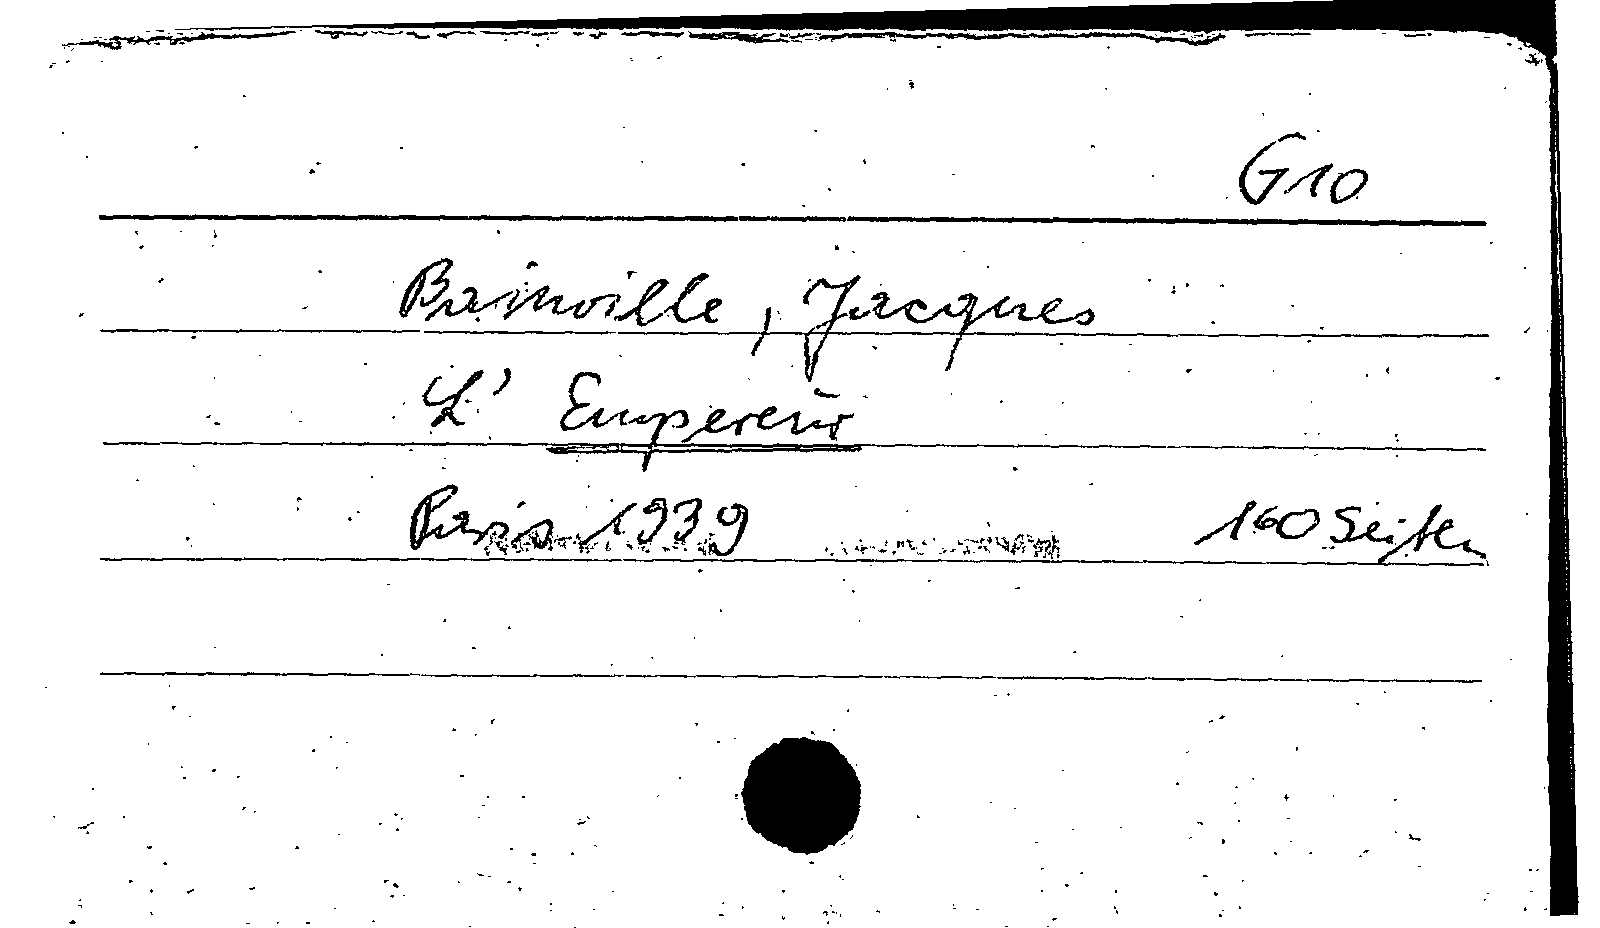 G10
Bainville, Jacques
L' Empereur
Paris 1939 160 Seiten